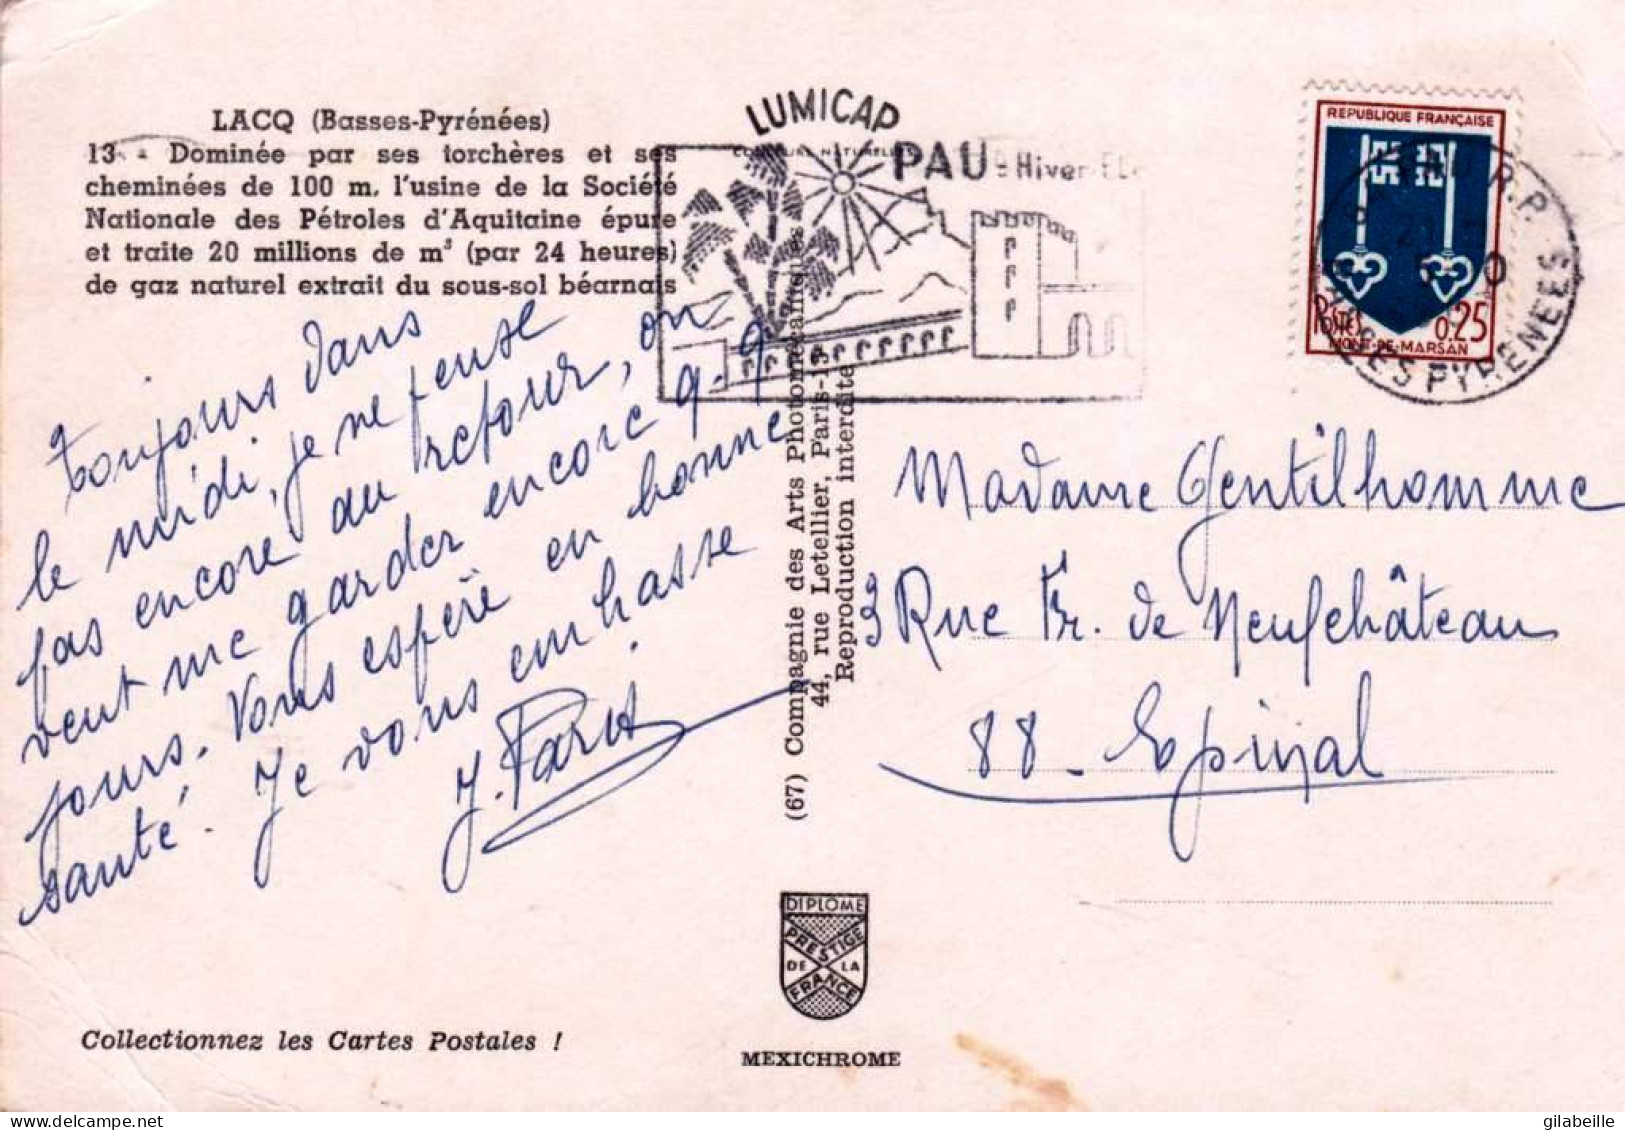 LACQ (Basses-Pyrénées)
13 - Dominée par ses torchères et ses
cheminées de 100 m, l'usine de la Société
Nationale des Pétroles d'Aquitaine épure
et traite 20 millions de m³ (par 24 heures)
de gaz naturel extrait du sous-sol béarnais
Toujours dans
le midi, je ne pense
pas encore au retour, on
veut me garder encore q.q
jours. Vous espère en bonne
santé. Je vous embrasse
J. Paris
Collectionnez les Cartes Postales !
(67) Compagnie des Arts Photomécaniques
44, rue Letellier, Paris-15
Reproduction interdite
DIPLOME
PRESTIGE
DE LA
FRANCE
MEXICHROME
LUMICAP
PAU
Hiver
REPUBLIQUE FRANÇAISE
POSTES
0.25
MONT-DE-MARSAN
R.P.
BASSES PYRENEES
Madame Gentilhomme
3 Rue Fr. de Neufchâteau
88 - Epinal
gilabeille